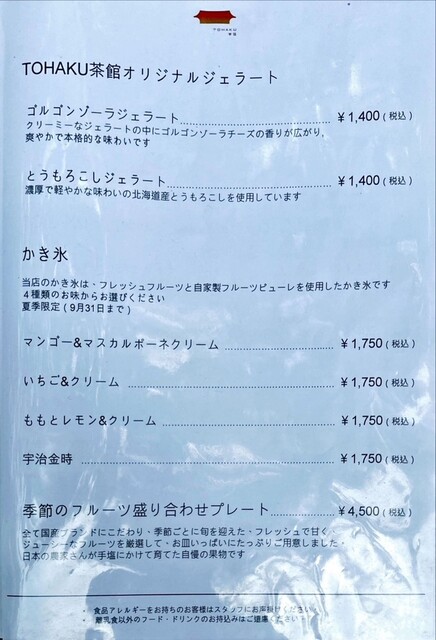 TOHAKU
茶館
TOHAKU茶館オリジナルジェラート
ゴルゴンゾーラジェラート ￥1,400 (税込)
クリーミーなジェラートの中にゴルゴンゾーラチーズの香りが広がり、
爽やかで本格的な味わいです
とうもろこしジェラート ￥1,400 (税込)
濃厚で軽やかな味わいの北海道産とうもろこしを使用しています
かき氷
当店のかき氷は・フレッシュフルーツと自家製フルーツピューレを使用したかき氷です
４種類のお味からお選びください
夏季限定（9月31日まで）
マンゴー&マスカルポーネクリーム ￥1,750 (税込)
いちご&クリーム ￥1,750 (税込)
ももとレモン&クリーム ￥1,750 (税込)
宇治金時 ￥1,750 (税込)
季節のフルーツ盛り合わせプレート ￥4,500 (税込)
全て国産ブランドにこだわり・季節ごとに旬を迎えた・フレッシュで甘く、
ジューシーなフルーツを厳選して・お皿いっぱいにたっぷりご用意しました・
日本の農家さんが手塩にかけて育てた自慢の果物です
・ 食品アレルギーをお持ちのお客様はスタッフにお声掛けください・
・ 離乳食以外のフード・ドリンクのお持込みはご遠慮ください・